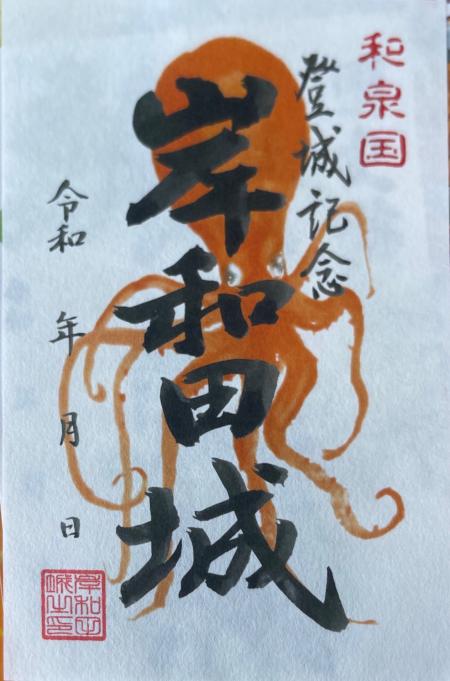 和泉国
登城記念
岸和田城
令和 年 月 日